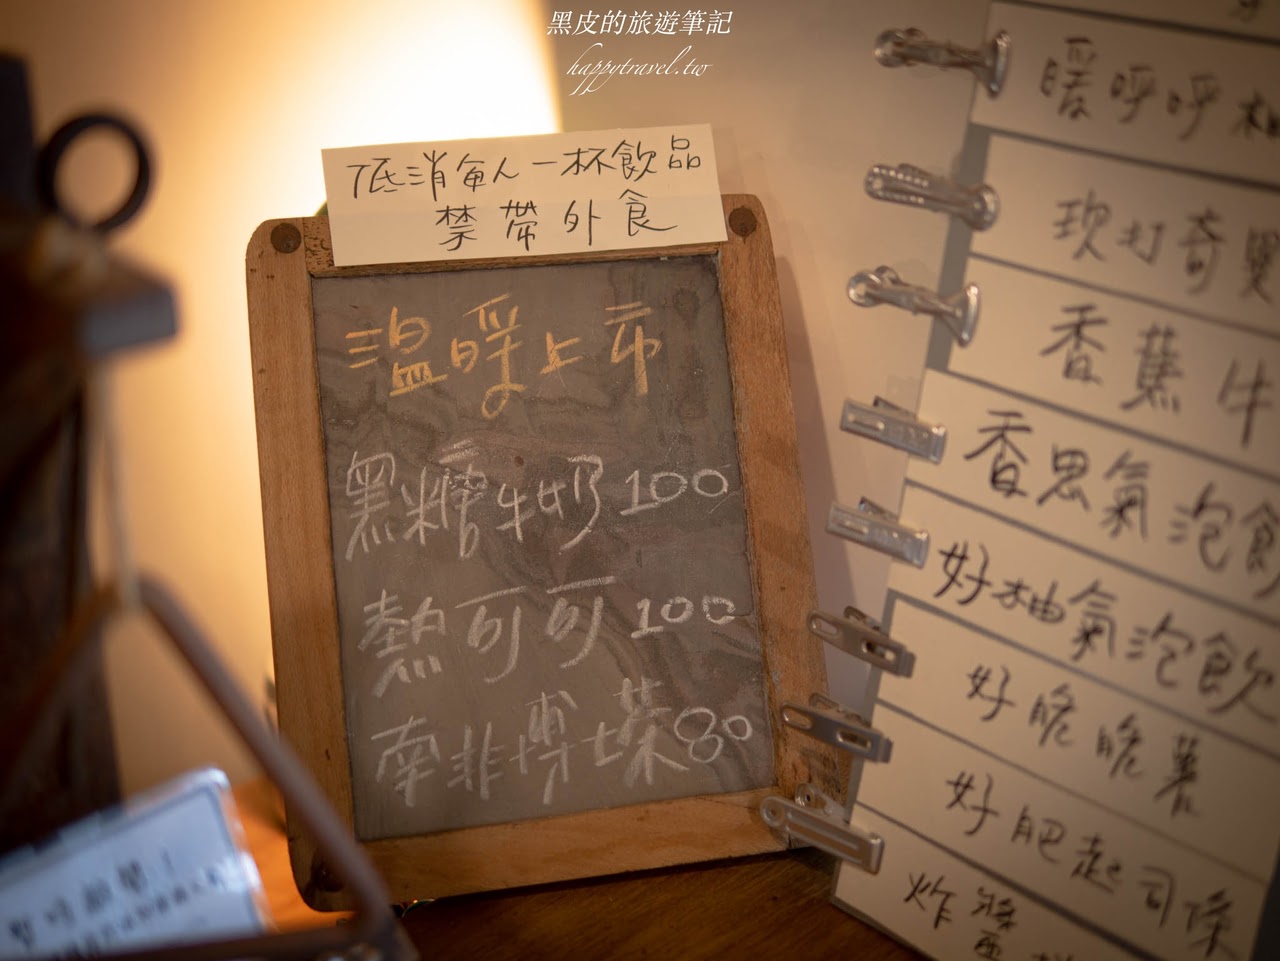 黑皮的旅遊筆記
happytravel.tw
低消每人一杯飲品
禁帶外食
溫暖上市
黑糖牛奶100
熱可可100
南非博士茶80
暖呼呼柚
坎打奇異
香蕉牛
香思氣泡飲
好柚氣泡飲
好脆脆薯
好肥起司條
炸醬